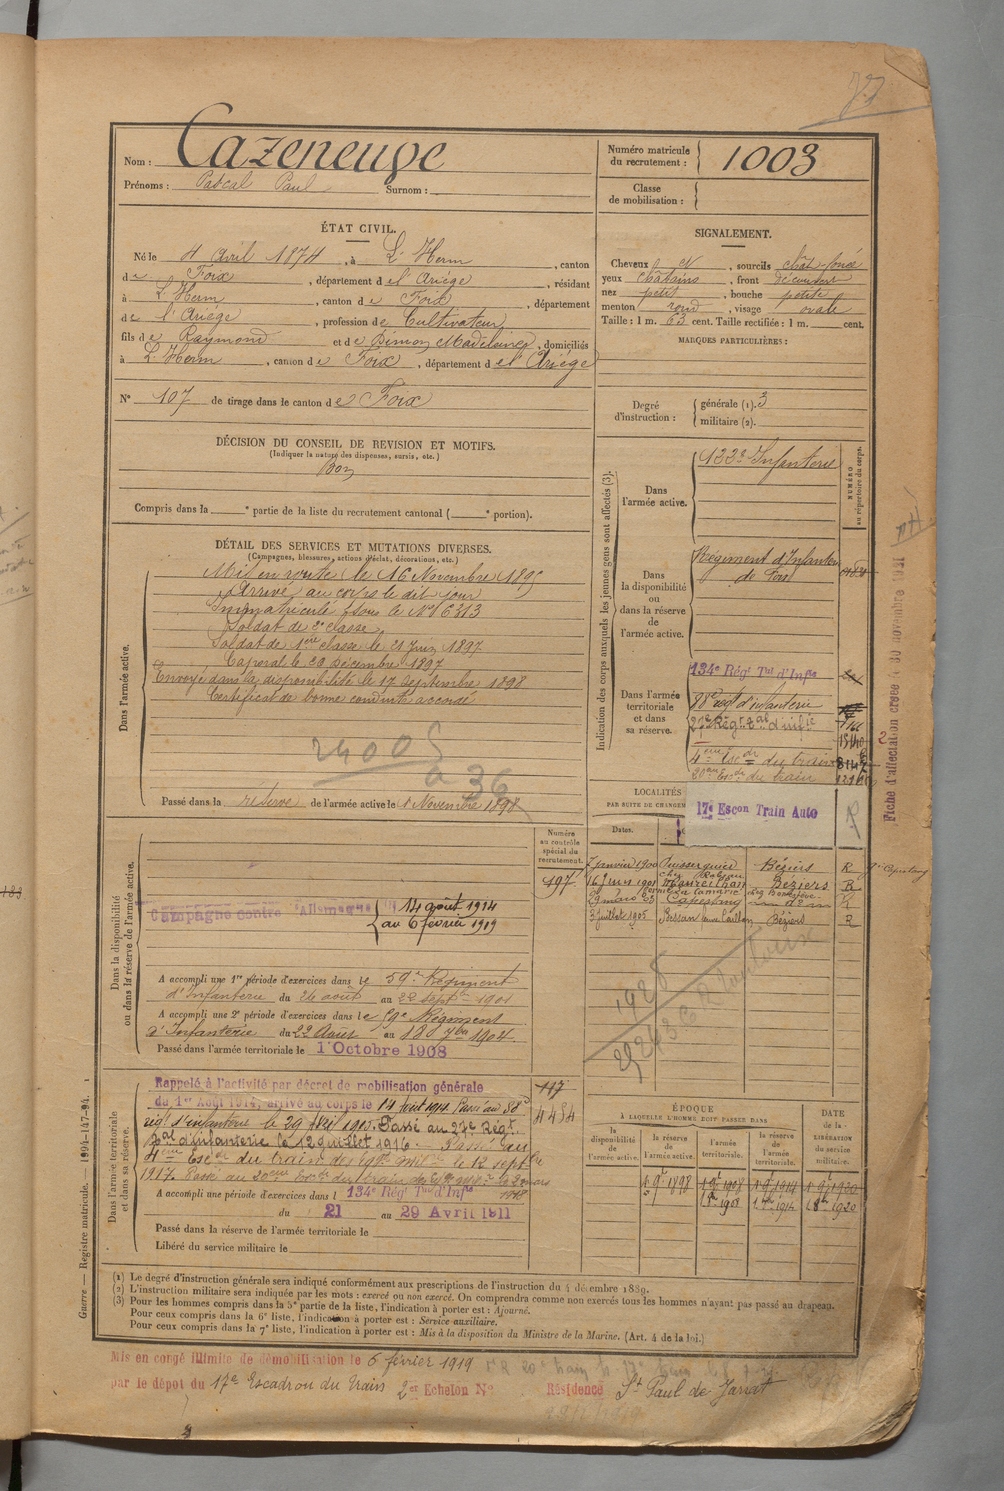 Nom : Cazeneuve
Prénoms : Pascal Paul Surnom :
Numéro matricule du recrutement : 1003
Classe de mobilisation :
ÉTAT CIVIL.
Né le 4 Avril 1874, à L'Herm, canton
de Foix, département de l'Ariège, résidant
à L'Herm, canton de Foix, département
de l'Ariège, profession de Cultivateur
fils de Raymond et de Simon Madelaine, domiciliés
à L'Herm, canton de Foix, département de l'Ariège
N° 107 de tirage dans le canton de Foix
SIGNALEMENT.
Cheveux et N, sourcils chât foncé
yeux châtains, front découvert
nez petit, bouche petite
menton rond, visage ovale
Taille : 1 m. 63 cent. Taille rectifiée : 1 m. cent.
MARQUES PARTICULIÈRES :
Degré d'instruction : générale (1). 3
militaire (2).
DÉCISION DU CONSEIL DE REVISION ET MOTIFS.
(Indiquer la nature des dispenses, sursis, etc.)
Bon
Compris dans la e partie de la liste du recrutement cantonal ( e portion).
DÉTAIL DES SERVICES ET MUTATIONS DIVERSES.
(Campagnes, blessures, actions d'éclat, décorations, etc.)
Dans l'armée active.
Mis en route le 16 Novembre 1895
Arrivé au corps le dit jour
Immatriculé sous le N° 6313
Soldat de 2e classe
Soldat de 1ère classe le 21 Juin 1897
Caporal le 20 Décembre 1897
Envoyé dans la disponibilité le 17 Septembre 1898
Certificat de bonne conduite accordé
Passé dans la réserve de l'armée active le 1 Novembre 1898
Indication des corps auxquels les jeunes gens sont affectés (3).
NUMÉRO au répertoire du corps.
Dans l'armée active.
122e Infanterie
Dans la disponibilité ou dans la réserve de l'armée active.
Régiment d'Infanterie
de Foix
Dans l'armée territoriale et dans sa réserve.
134e Régt Tal d'Infie
88e regt d'infanterie
27e Régt tal d'infie
4eme Escdr du train
20eme Escdr du train
17e Escon Train Auto
Fiche d'affectation créée le 30 novembre 1921
LOCALITÉS
PAR SUITE DE CHANGEM
Dates.
7 janvier 1900 Puisserguier Béziers R
16 Juin 1901 Maureilhan Béziers R
29 mars 03 Capestang
3 Juillet 1905 Bessan Béziers R
Dans la disponibilité ou dans la réserve de l'armée active.
Numéro au contrôle spécial du recrutement.
197
Campagne contre l'Allemagne du 14 août 1914
au 6 février 1919
A accompli une 1re période d'exercices dans le 59e Régiment
d'Infanterie du 26 août au 22 septbre 1901
A accompli une 2e période d'exercices dans le 59e Régiment
d'Infanterie du 22 Août au 18 7bre 1904
Passé dans l'armée territoriale le 1 Octobre 1908
Dans l'armée territoriale et dans sa réserve.
Rappelé à l'activité par décret de mobilisation générale
du 1er Août 1914, arrivé au corps le 14 août 1914. Passé au 88e
regt d'infanterie le 29 1915. Passé au 27e Régt
tal d'infanterie le 12 Juillet 1916. Passé au
4eme Escdr du train des le 12 septbre
1917. Passé au 20eme Escdr du train des le 2 mars
1918
A accompli une période d'exercices dans l 134e Régt Tal d'Infie
du 21 au 29 Avril 1911
Passé dans la réserve de l'armée territoriale le
Libéré du service militaire le
117
4484
ÉPOQUE
À LAQUELLE L'HOMME DOIT PASSER DANS
la disponibilité de l'armée active.
la réserve de l'armée active.
l'armée territoriale.
la réserve de l'armée territoriale.
DATE DE LA LIBÉRATION du service militaire.
Guerre. — Registre matricule. — 1894-147-94.
(1) Le degré d'instruction générale sera indiqué conformément aux prescriptions de l'instruction du 4 décembre 1889.
(2) L'instruction militaire sera indiquée par les mots : exercé ou non exercé. On comprendra comme non exercés tous les hommes n'ayant pas passé au drapeau.
(3) Pour les hommes compris dans la 5e partie de la liste, l'indication à porter est : Ajourné.
Pour ceux compris dans la 6e liste, l'indication à porter est : Service auxiliaire.
Pour ceux compris dans la 7e liste, l'indication à porter est : Mis à la disposition du Ministre de la Marine. (Art. 4 de la loi.)
Mis en congé illimité de démobilisation le 6 février 1919
par le dépôt du 17e Escadron du Train 2er Echelon N° Résidence St Paul de Jarrat